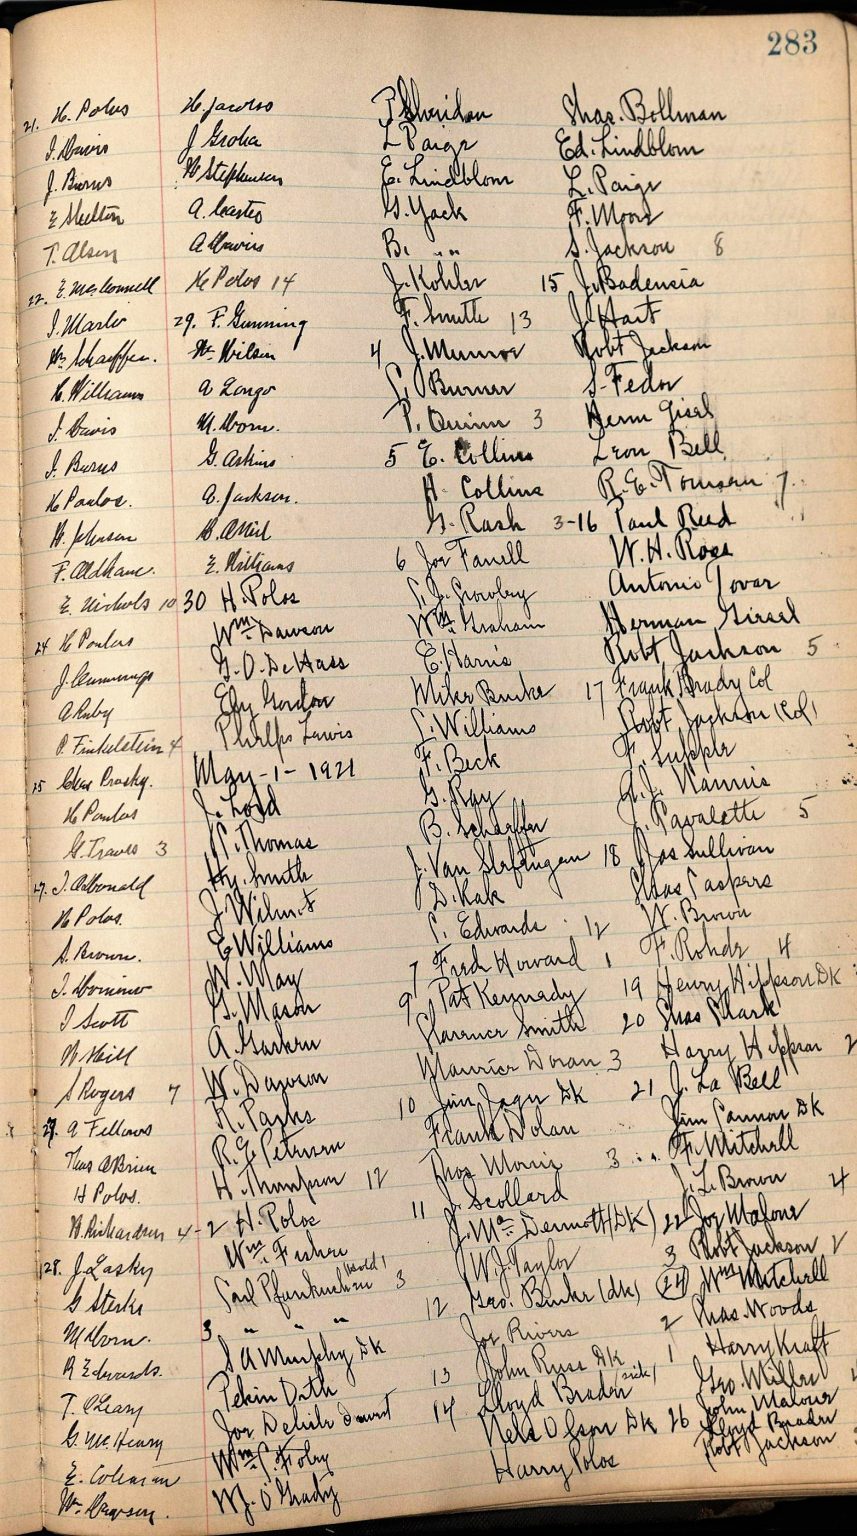 283
21. H. Polos
I. Davis
J. Burns
E Shelton
T. Olsen
22. E. McConnell
I. Marlo
Wm Schaeffer.
H. Williams
I. Davis
I. Burns
H Poulos.
H. Johnson
F. Oldham.
E. Nichols 10
24 H Poulos
J. Cummings
A Ruby
P. Finkelstein 4
25 Chas Prosky.
H Poulos
G. Traves 3
27. J. McDonald
H Polos.
S. Brown.
J. Domino
J Scott
W. Hill
S Rogers 7
A Fellows
Thos OBrien
H Polos.
W. Richardson 4
28. J. Lasky
G Sterks
M Horn.
R Edwards.
T. O'Leary
G. McHenry
E. Coleman
Wm Dawson.
H. Jacobs
J Groha
W Stephenson
A. Castro
A Davis
H Polos 14
29. F. Gunning
Wm Wilson
A Longo
M. Horn.
G. Askins
A. Jackson.
E. Williams
30 H. Polos
Wm. Dawson
G. O. De Hass
Ely Gordon
Phelps Lewis
May-1-1921
J. Lord
C. Thomas
Hy. Smith
J. Wilmot
E Williams
W. May
G. Mason
A. Gaskin
W. Dawson
R. Parks
R. G. Peterson
H. Thompson 12
2 H. Polos
Wm. Fisher
Carl Pfankuchen 3
3 " " "
S A Murphy DK
Pekin Dutch
Wm. C. Foley
W. J. O'Grady
P Sheridan
L Paige
E. Lindblom
G. Yack
B. " "
J. Kohler
F. Smith 13
4 J. Munroe
C. Burner
P. Quinn 3
5 E. Collins
H. Collins
G. Rash 3
6 Joe Farrell
C. J. Crowley
Wm. Graham
E. Harris
Mike Burke
C. Williams
F. Beck
G. Ray
B. Schaffer
D. Kak
C. Edwards 12
7 Fred Howard 1
9 Pat Kennady
Clarence Smith
Maurice Doran 3
10 Jim Jager DK
Frank Dolan
Thos Morris 3
11 J. Scollard
J. McDermott (DK)
W J. Taylor
12 Geo. Burke (dk)
Joe Rivers
13 John Russ DK
14 Lloyd Braden (sick)
Nels Olson DK
Harry Polos
Chas. Bollman
Ed. Lindblom
L. Paige
F. Moore
S. Jackson 8
15 J. Badensia
J. Hart
Robt Jackson
S. Fedor
Herm Gisel
Leon Bell
R. E. Tomson 7
16 Paul Reed
W. H. Ross
Antonio Tovar
Herman Girsel
Robt Jackson 5
17 Frank Brady Col
Robt Jackson (Col)
F. Supple
A. J. Nannis
J. Pavalette 5
18 Jas Sullivan
Chas Caspers
W. Brown
F. Rohde 4
19 Henry Hippson DK
20 Chas Clark
Harry Hippson 2
21 J. La Bell
Jim Cannon DK
F. Mitchell
J. L. Brown 4
22 Joe Malone
3 Robt Jackson 2
24 Wm Mitchell
2 Chas. Woods
1 Harry Kraft
Geo. Miller
26 John Malone
Lloyd Braden
Robt Jackson